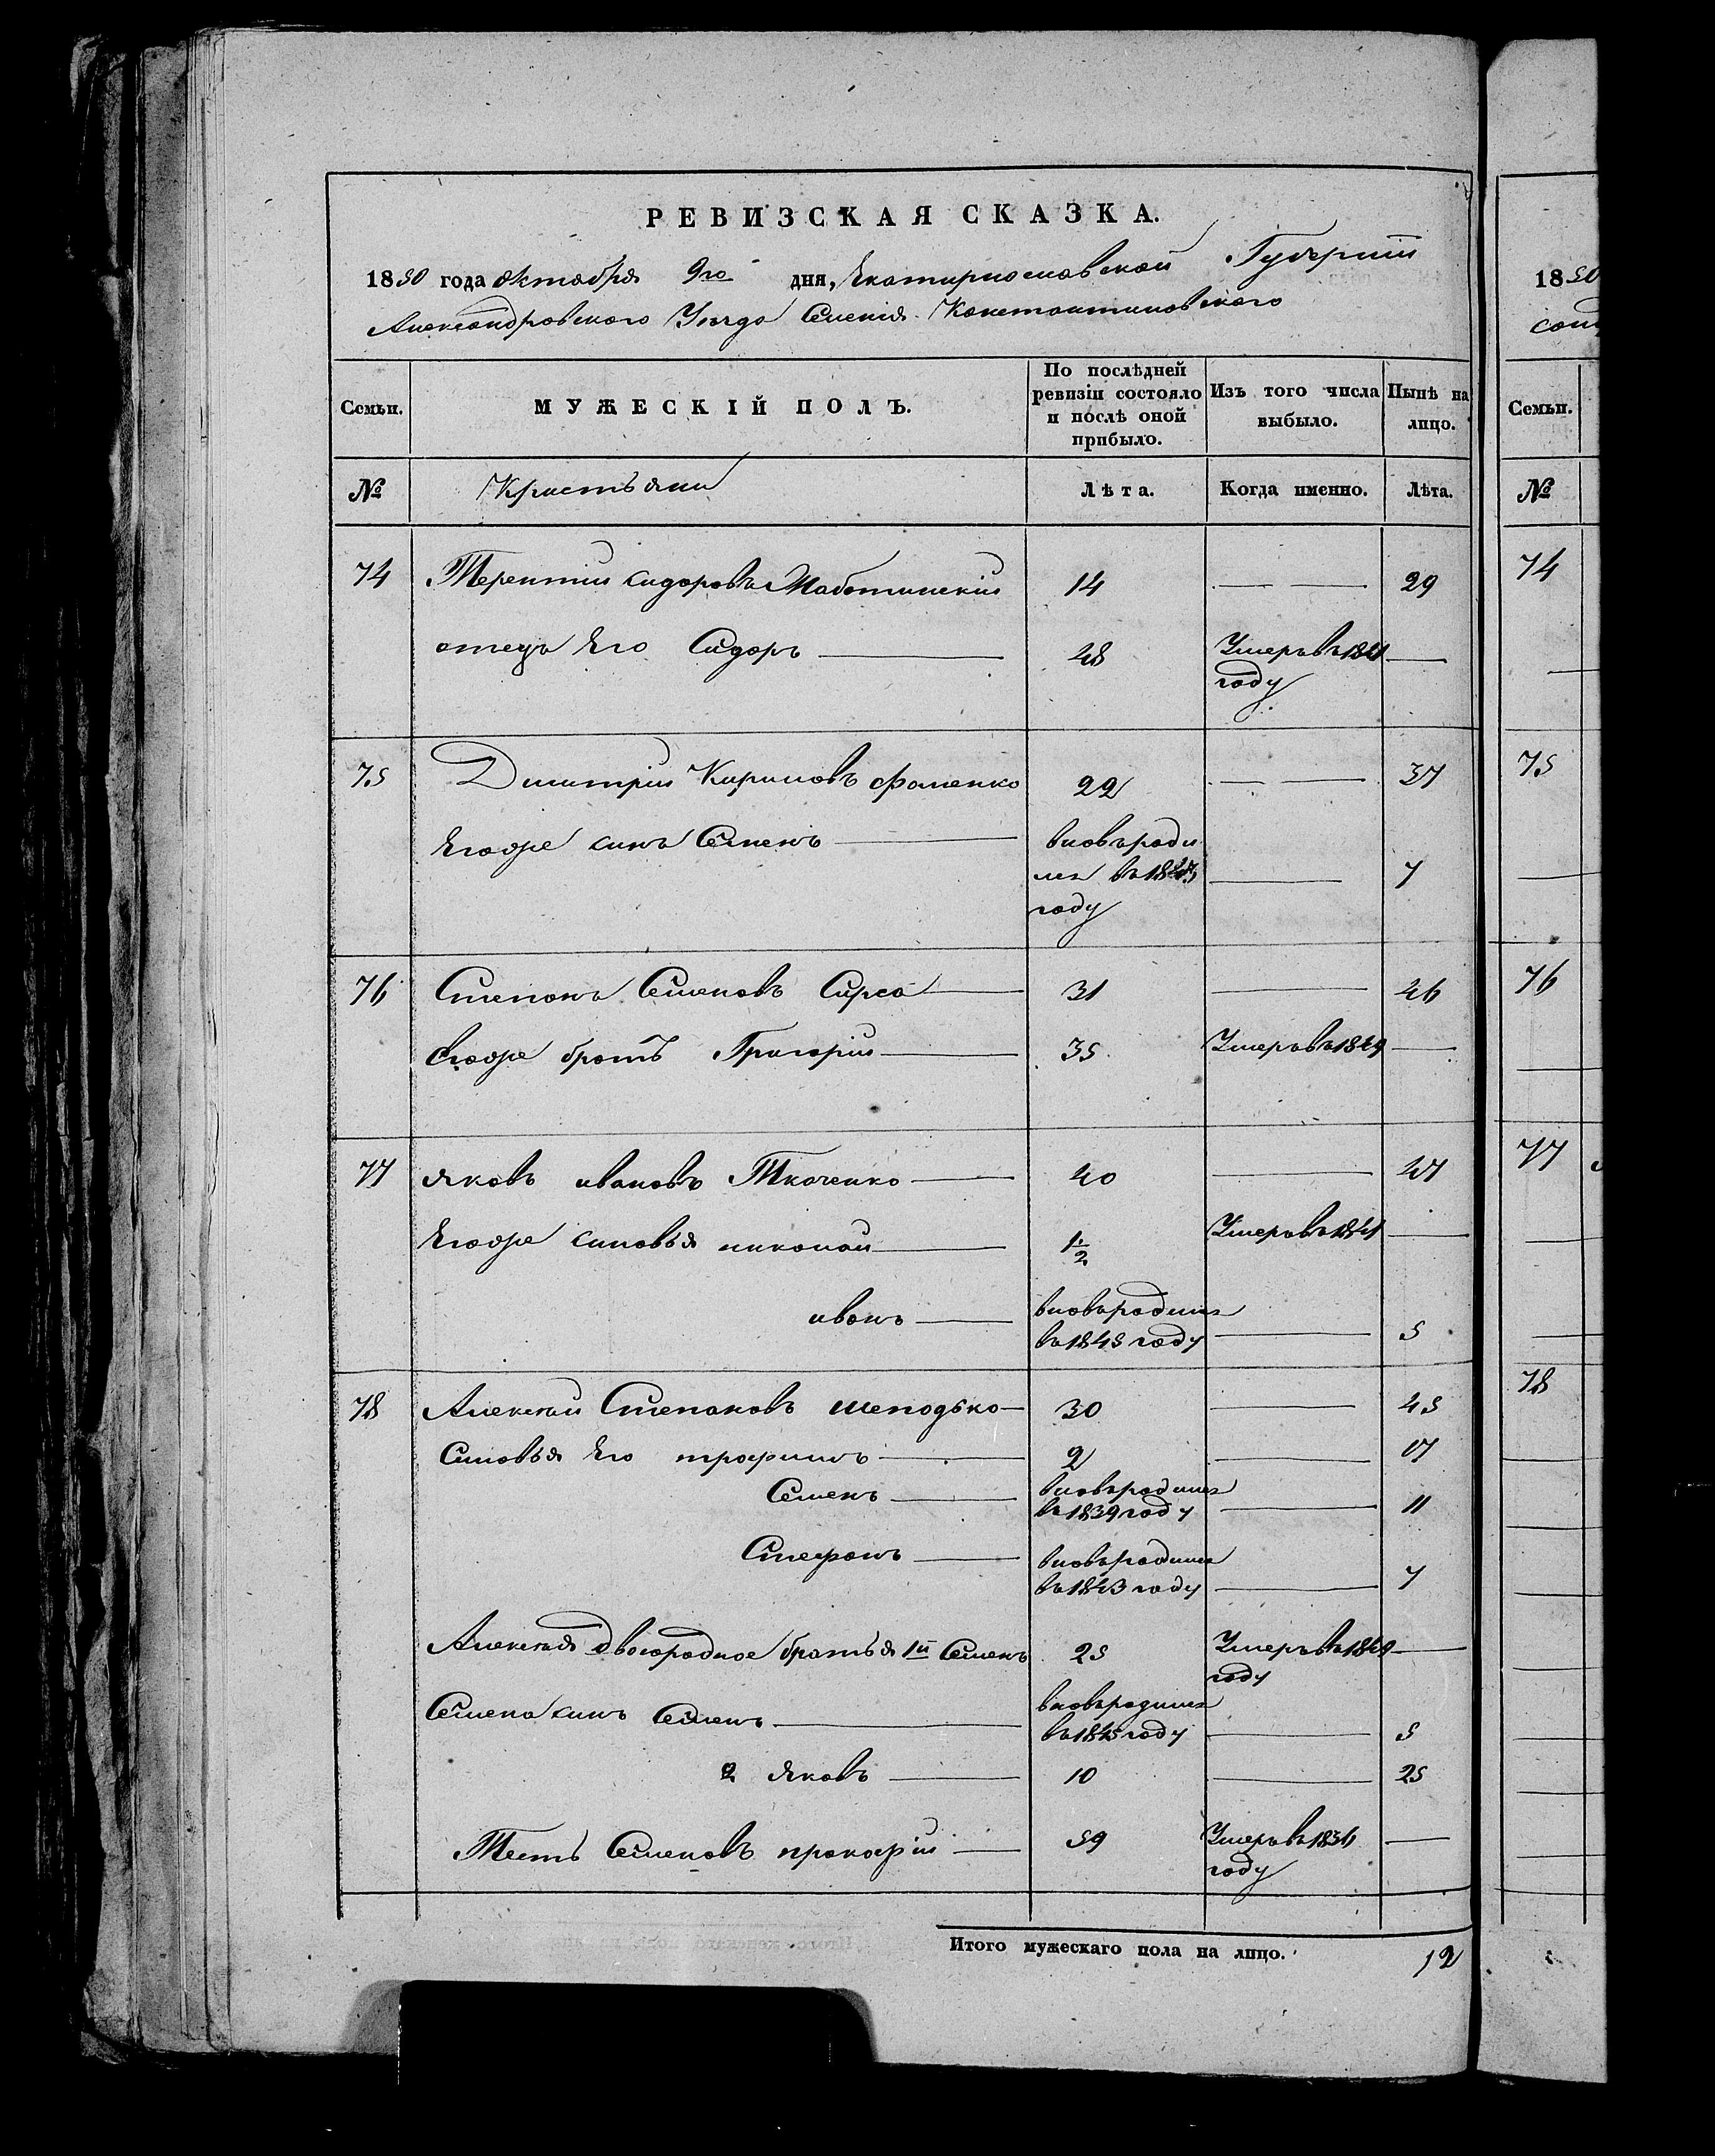 РЕВИЗСКАЯ СКАЗКА.
1850 года октября 9го дня, Екатириославской Губернии
Александровского Уезда Селения Константиновского
Семьи. МУЖЕСКІЙ ПОЛЪ. По послѣдней ревизіи состояло и послѣ оной прибыло. Изъ того числа выбыло. Нынѣ на лицо.
№ Кристъяни Лѣта. Когда именно. Лѣта.
74 Терентии Сидоровъ 14 — — 29
отецъ Его Сидоръ — 48 Умеръ въ 1841 —
году
75 Димитрии Кириловъ Фоменко 22 — — 37
Егоже синъ Семенъ — вновь роди
лся въ 1843 — 7
году
76 Степанъ Семеновъ Сирса — 31 — 46
Егоже братъ Григории — 35 Умеръ въ 1849 —
77 Яковъ ивановъ Ткаченко — 40 — 47
Егоже синовья николаи — 1 1/2 Умеръ въ 1841 —
иванъ — вновь родился
въ 1845 году — 5
78 Алексеи Степановъ — 30 — 45
Синовья Его трофимъ — 2 — 17
Семенъ — вновь родился
въ 1839 году — 11
Стефанъ — вновь родился
въ 1843 году — 7
Алексея Двоюродное братья 1й Семенъ 25 Умеръ въ 1849 —
году
Семена синъ Семенъ — вновь родился
въ 1845 году — 5
2 Яковъ — 10 — 25
Тесть Семеновъ прокофіи — 59 Умеръ въ 1836 —
году
Итого мужескаго пола на лицо. 12
1850
Семьи.
№
74
75
76
77
78